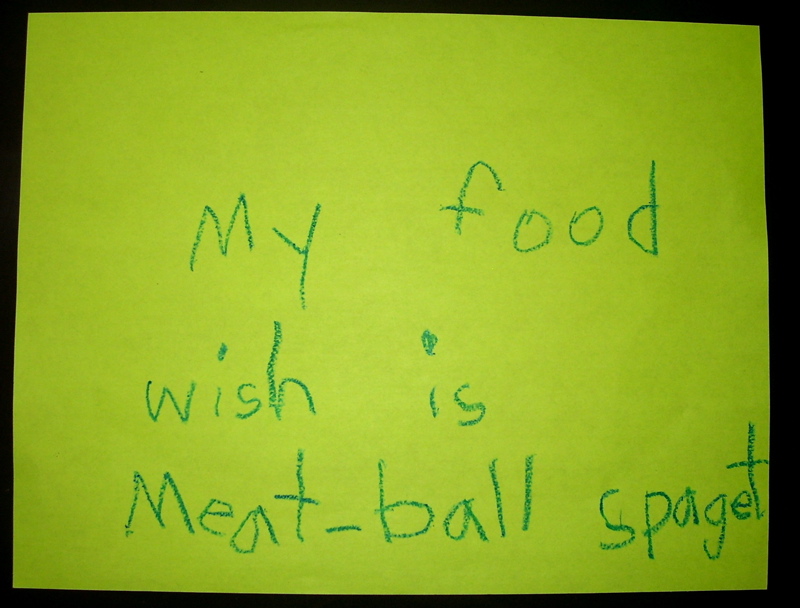 My food
wish is
Meat-ball spaget